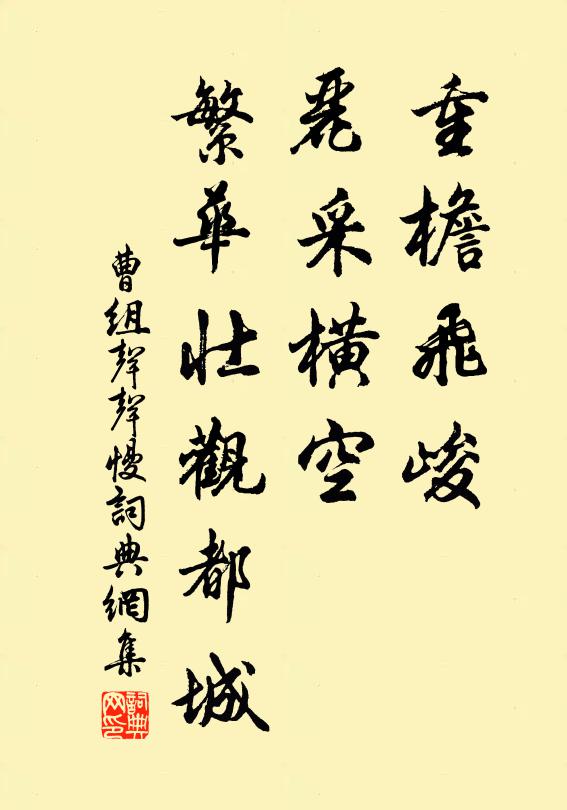 重檐飛峻
麗采橫空
繁華壯觀都城
曹組聲聲慢詞典網集
詞典网印